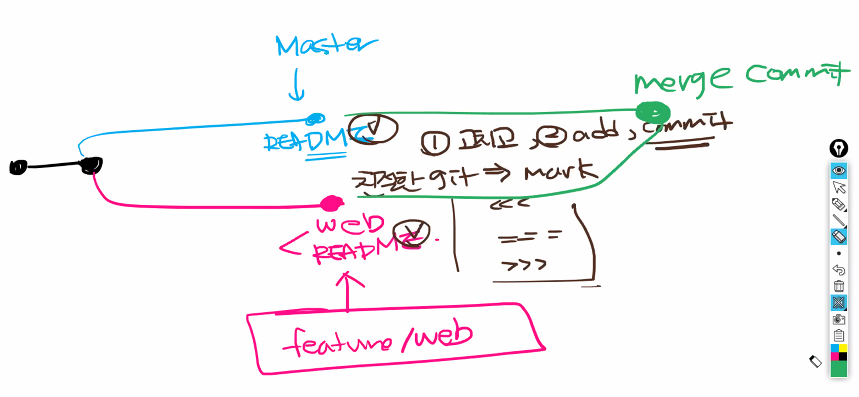 Master
merge commit
README
① 고치고, ② add, commit
친절한 git ⇒ mark
<<<
===
>>>
web
README
feature/web